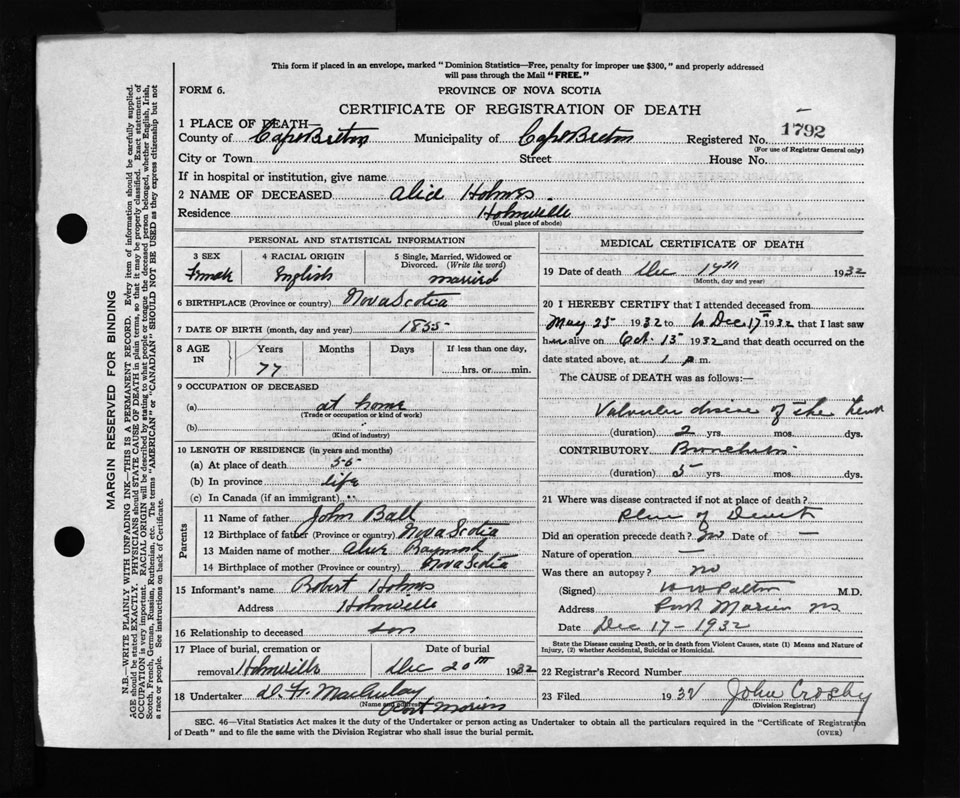 This form if placed in an envelope, marked "Dominion Statistics—Free, penalty for improper use $300," and properly addressed
will pass through the Mail "FREE."
FORM 6. PROVINCE OF NOVA SCOTIA
CERTIFICATE OF REGISTRATION OF DEATH
1 PLACE OF DEATH—
County of Cape Breton Municipality of Cape Breton Registered No. 1792
(For use of Registrar General only)
City or Town Street House No.
If in hospital or institution, give name
2 NAME OF DECEASED Alice Holmes
Residence Homeville
(Usual place of abode)
PERSONAL AND STATISTICAL INFORMATION
3 SEX 4 RACIAL ORIGIN 5 Single, Married, Widowed or Divorced. (Write the word)
Female English married
6 BIRTHPLACE (Province or country) Nova Scotia
7 DATE OF BIRTH (month, day and year) 1855
8 AGE IN Years Months Days If less than one day,
77 hrs. or min.
9 OCCUPATION OF DECEASED
(a) at home
(Trade or occupation or kind of work)
(b)
(Kind of industry)
10 LENGTH OF RESIDENCE (in years and months)
(a) At place of death 55
(b) In province life
(c) In Canada (if an immigrant) "
Parents
11 Name of father John Ball
12 Birthplace of father (Province or country) Nova Scotia
13 Maiden name of mother Alice Raymond
14 Birthplace of mother (Province or country) Nova Scotia
15 Informant's name Robert Holmes
Address Homeville
16 Relationship to deceased son
17 Place of burial, cremation or Date of burial
removal Homeville Dec 20th 1932
18 Undertaker
(Name and address) Port Morien
MEDICAL CERTIFICATE OF DEATH
19 Date of death Dec 17th 1932
(Month, day and year)
20 I HEREBY CERTIFY that I attended deceased from
May 25 1932 to Dec 17 1932 that I last saw
her alive on Oct. 15 1932 and that death occurred on the
date stated above, at 1 p m.
The CAUSE of DEATH was as follows:—
Valvular disease of the heart
(duration) 2 yrs. mos. dys.
CONTRIBUTORY Bronchitis
(duration) 5 yrs. mos. dys.
21 Where was disease contracted if not at place of death?
place of Death
Did an operation precede death? no Date of —
Nature of operation —
Was there an autopsy? no
(Signed) M.D.
Address Port Morien NS
Date Dec 17 - 1932
State the Disease causing Death, or in death from Violent Causes, state (1) Means and Nature of
Injury, (2) whether Accidental, Suicidal or Homicidal.
22 Registrar's Record Number
23 Filed 1932 John Crosby
(Division Registrar)
SEC. 46—Vital Statistics Act makes it the duty of the Undertaker or person acting as Undertaker to obtain all the particulars required in the "Certificate of Registration
of Death" and to file the same with the Division Registrar who shall issue the burial permit. (OVER)
MARGIN RESERVED FOR BINDING
N.B.—WRITE PLAINLY WITH UNFADING INK—THIS IS A PERMANENT RECORD. Every item of information should be carefully supplied.
AGE should be stated EXACTLY. PHYSICIANS should STATE CAUSE OF DEATH in plain terms, so that it may be properly classified. Exact statement of
OCCUPATION is very important. RACIAL ORIGIN will be described by stating to what people or tongue the deceased person belonged, whether English, Irish,
Scotch, French, German, Russian, Ruthenian, etc. The terms "AMERICAN" or "CANADIAN" SHOULD NOT BE USED as they express citizenship but not
a race or people. See instructions on back of Certificate.